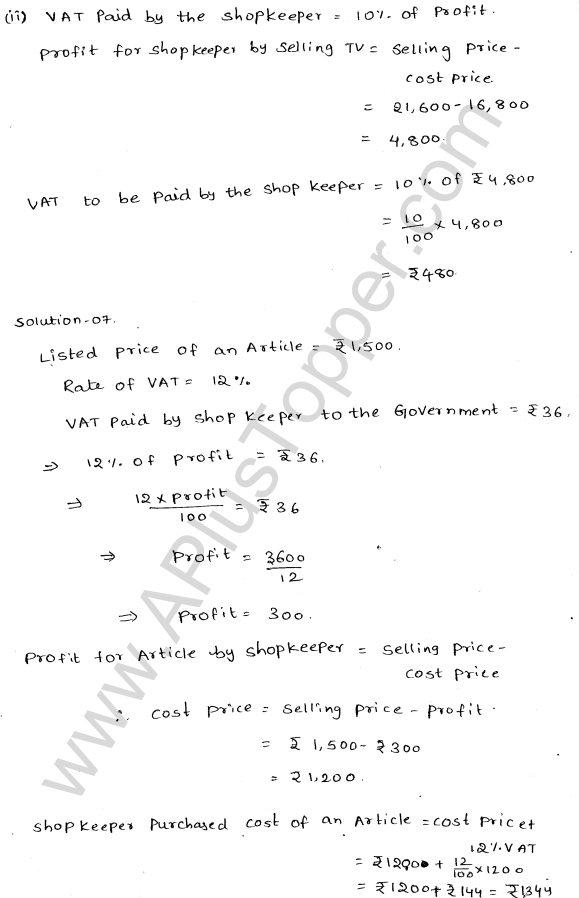 (ii) VAT Paid by the shopkeeper = 10% of Profit.
Profit for shopkeeper by selling TV = selling price -
cost price.
= 21,600 - 16,800
= 4,800.
VAT to be Paid by the shop keeper = 10% of ₹4,800
= 10/100 × 4,800
= ₹480.
Solution-07.
Listed price of an Article = ₹1,500.
Rate of VAT = 12%
VAT Paid by shop keeper to the Government = ₹36.
⇒ 12% of profit = ₹36.
⇒ 12 × profit/100 = ₹36
⇒ Profit = 3600/12
⇒ Profit = 300.
Profit for Article by shopkeeper = selling price -
cost price
∴ cost price = selling price - profit.
= ₹1,500 - ₹300
= ₹1,200.
shopkeeper purchased cost of an Article = cost price +
12% VAT
= ₹1200 + 12/100 × 1200
= ₹1200 + ₹144 = ₹1344
www.APlusTopper.com